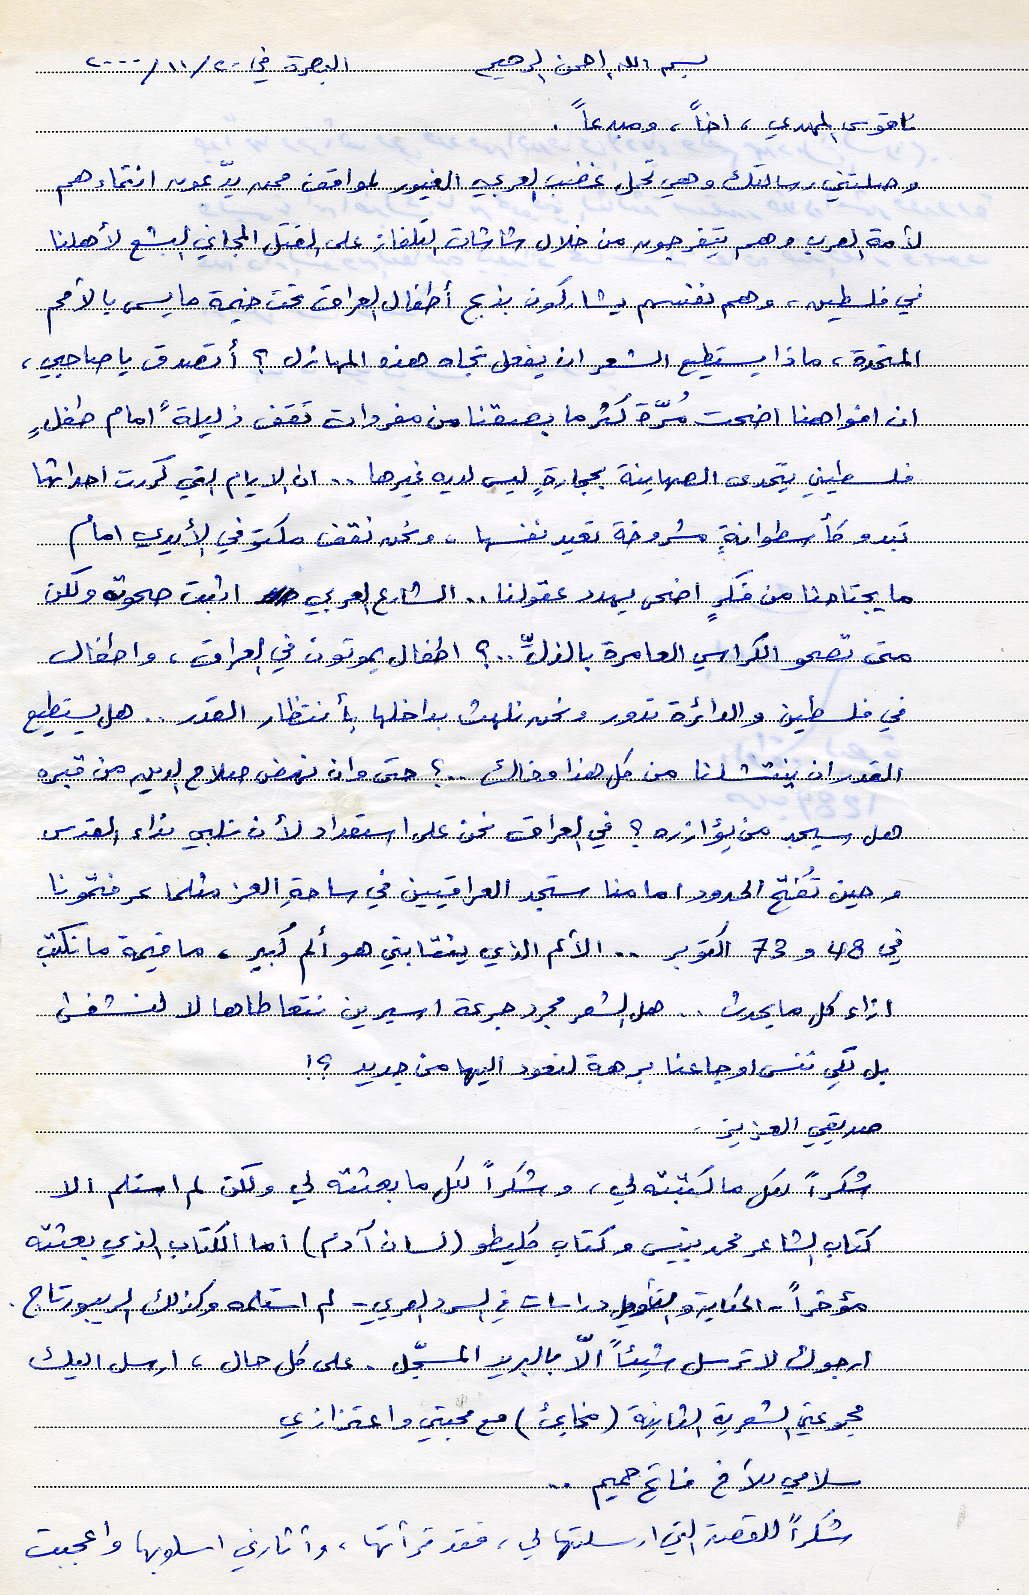 بسم الله الرحمن الرحيم البصرة في ٢٠/١١/٢٠٠٠
المهدي، اخاً، ومبدعاً.
وصلتني رسالتك وهي تحمل غضب العربي الغيور لمواقف ممن يدّعون انتماءهم
لأمة العرب وهم يتفرجون من خلال شاشات التلفاز على القتل المجاني البشع لأهلنا
في فلسطين، وهم نفسهم يشاركون بذبح أطفال العراق تحت خيمة ما يسمى بالأمم
المتحدة، ماذا يستطيع الشعر ان يفعل تجاه هذه المهازل؟ أتصدق يا صاحبي،
ان افواهنا اضحت مُرّة لكثر ما بصقنا من مفردات تقف ذليلةً امام طفلٍ
فلسطيني يتحدى الصهاينة بحجارةٍ ليس لديه غيرها .. ان الايام التي كررت احداثها
تبدو كأسطوانةٍ مشروخة تعيد نفسها، ونحن نقف مكتوفي الأيدي امام
ما يجتاحنا من فكرٍ اضحى يهدد عقولنا .. الشارع العربي اثبت صحوته ولكن
متى تصحو الكراسي العامرة بالذلّ ..؟ اطفال يموتون في العراق، واطفال
في فلسطين والدائرة تدور ونحن نلهث بداخلها بأنتظار القدر .. هل يستطيع
القدر ان ينتشلنا من كل هذا وذاك ..؟ حتى وان نهض صلاح الدين من قبره
هل سيجد من يؤازره؟ في العراق نحن على استعداد لأن نلبي نداء القدس
وحين تُفتح الحدود امامنا ستجد العراقيين في ساحةِ العز مثلما عرفتمونا
في 48 و 73 اكتوبر .. الألم الذي ينتابني هو ألم كبير، ما قيمة ما نكتب
ازاء كل ما يحدث .. هل الشعر مجرد جرعة اسبرين نتعاطاها لا لنشفى
بل لكي ننسى اوجاعنا برهة لنعود اليها من جديد ؟!
صديقي العزيز.
شكراً لكل ما كتبته لي، وشكراً لكل ما بعثته لي ولكن لم استلم الا
كتاب الشاعر محمد بنيس وكتاب كليطو (لسان آدم) اما الكتاب الذي بعثته
مؤخراً - الحكاية والتأويل دراسات في السرد العربي - لم استلمه وكذلك الريبورتاج.
ارجوك لا ترسل شيئاً الّا بالبريد المسجّل. على كل حال، ارسل اليك
مجموعتي الشعرية الثانية (مخابئ) مع محبتي واعتزازي
سلامي للأخ فاتح حميم ..
شكراً للقصة التي ارسلتها لي، فقد قرأتها، وأثارني اسلوبها وأعجبت